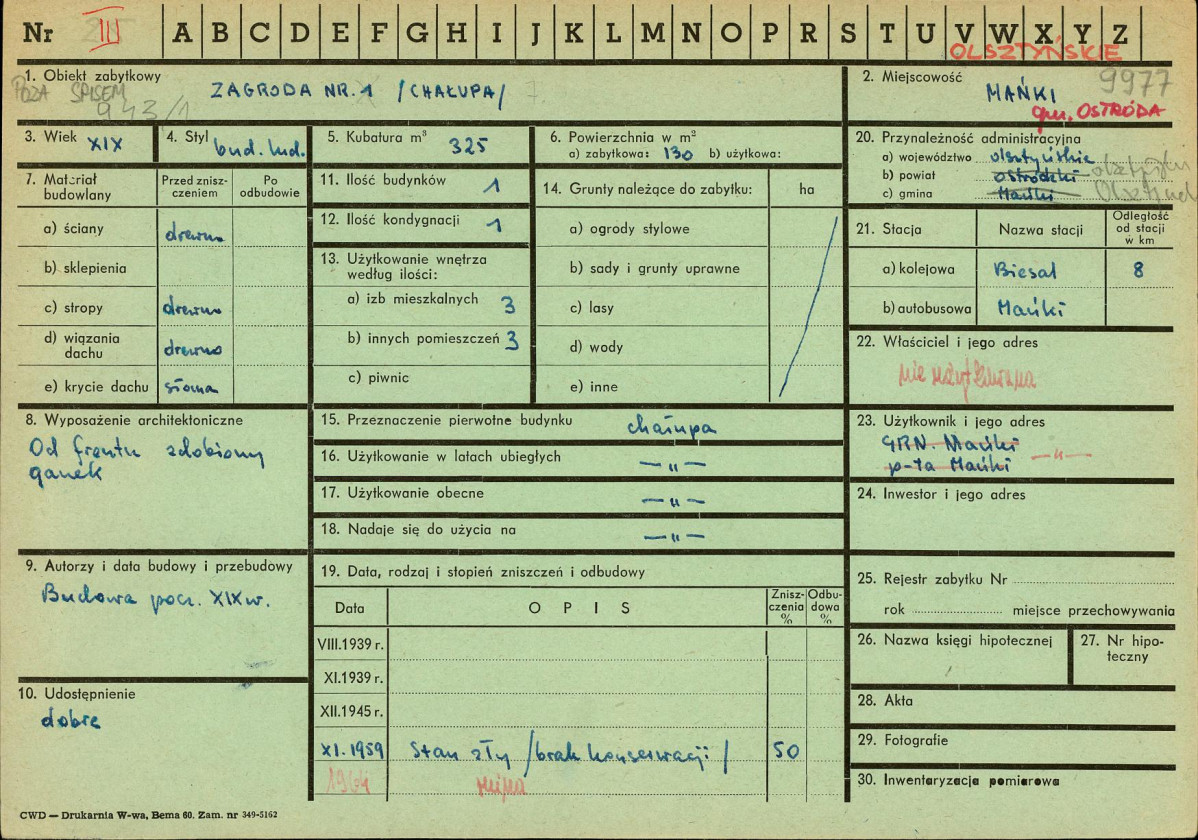 Nr III A B C D E F G H I J K L M N O P R S T U V W X Y Z
OLSZTYŃSKIE
1. Obiekt zabytkowy
POZA SPISEM
943/1
ZAGRODA NR. 1 /CHAŁUPA/
2. Miejscowość
9977
MAŃKI
gm. OSTRÓDA
3. Wiek XIX
4. Styl bud. lud.
5. Kubatura m³ 325
6. Powierzchnia w m²
a) zabytkowa: 130 b) użytkowa:
20. Przynależność administracyjna
a) województwo olsztyńskie
b) powiat ostródzki
c) gmina Mańki
7. Materiał budowlany
Przed zniszczeniem
Po odbudowie
a) ściany drewno
b) sklepienia
c) stropy drewno
d) wiązania dachu drewno
e) krycie dachu słoma
11. Ilość budynków 1
12. Ilość kondygnacji 1
13. Użytkowanie wnętrza
według ilości:
a) izb mieszkalnych 3
b) innych pomieszczeń 3
c) piwnic
14. Grunty należące do zabytku: ha
a) ogrody stylowe
b) sady i grunty uprawne
c) lasy
d) wody
e) inne
21. Stacja
Nazwa stacji
Odległość
od stacji
w km
a) kolejowa Biesal 8
b) autobusowa Mańki
22. Właściciel i jego adres
8. Wyposażenie architektoniczne
Od frontu zdobiony
ganek
15. Przeznaczenie pierwotne budynku chałupa
16. Użytkowanie w latach ubiegłych —„—
17. Użytkowanie obecne —„—
18. Nadaje się do użycia na —„—
23. Użytkownik i jego adres
GRN. Mańki
p-ta Mańki —„—
24. Inwestor i jego adres
9. Autorzy i data budowy i przebudowy
Budowa pocz. XIX w.
10. Udostępnienie
dobre
19. Data, rodzaj i stopień zniszczeń i odbudowy
Data
OPIS
Znisz-
czenia
%
Odbu-
dowa
%
VIII.1939 r.
XI.1939 r.
XII.1945 r.
XI.1959 Stan zły /brak konserwacji/ 50
1964 ruina
25. Rejestr zabytku Nr
rok miejsce przechowywania
26. Nazwa księgi hipotecznej
27. Nr hipo-
teczny
28. Akta
29. Fotografie
30. Inwentaryzacja pomiarowa
CWD — Drukarnia W-wa, Bema 60. Zam. nr 349-5162